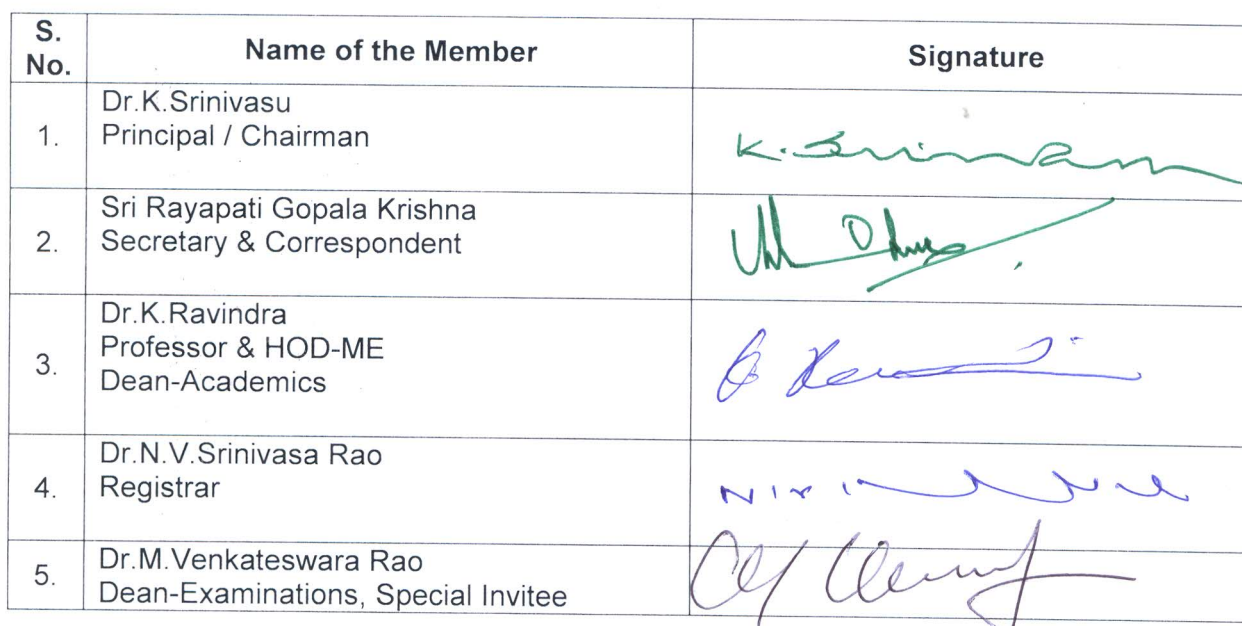 S.
No.
Name of the Member
Signature
1.
Dr.K.Srinivasu
Principal / Chairman
K.
2.
Sri Rayapati Gopala Krishna
Secretary & Correspondent
3.
Dr.K.Ravindra
Professor & HOD-ME
Dean-Academics
4.
Dr.N.V.Srinivasa Rao
Registrar
5.
Dr.M.Venkateswara Rao
Dean-Examinations, Special Invitee